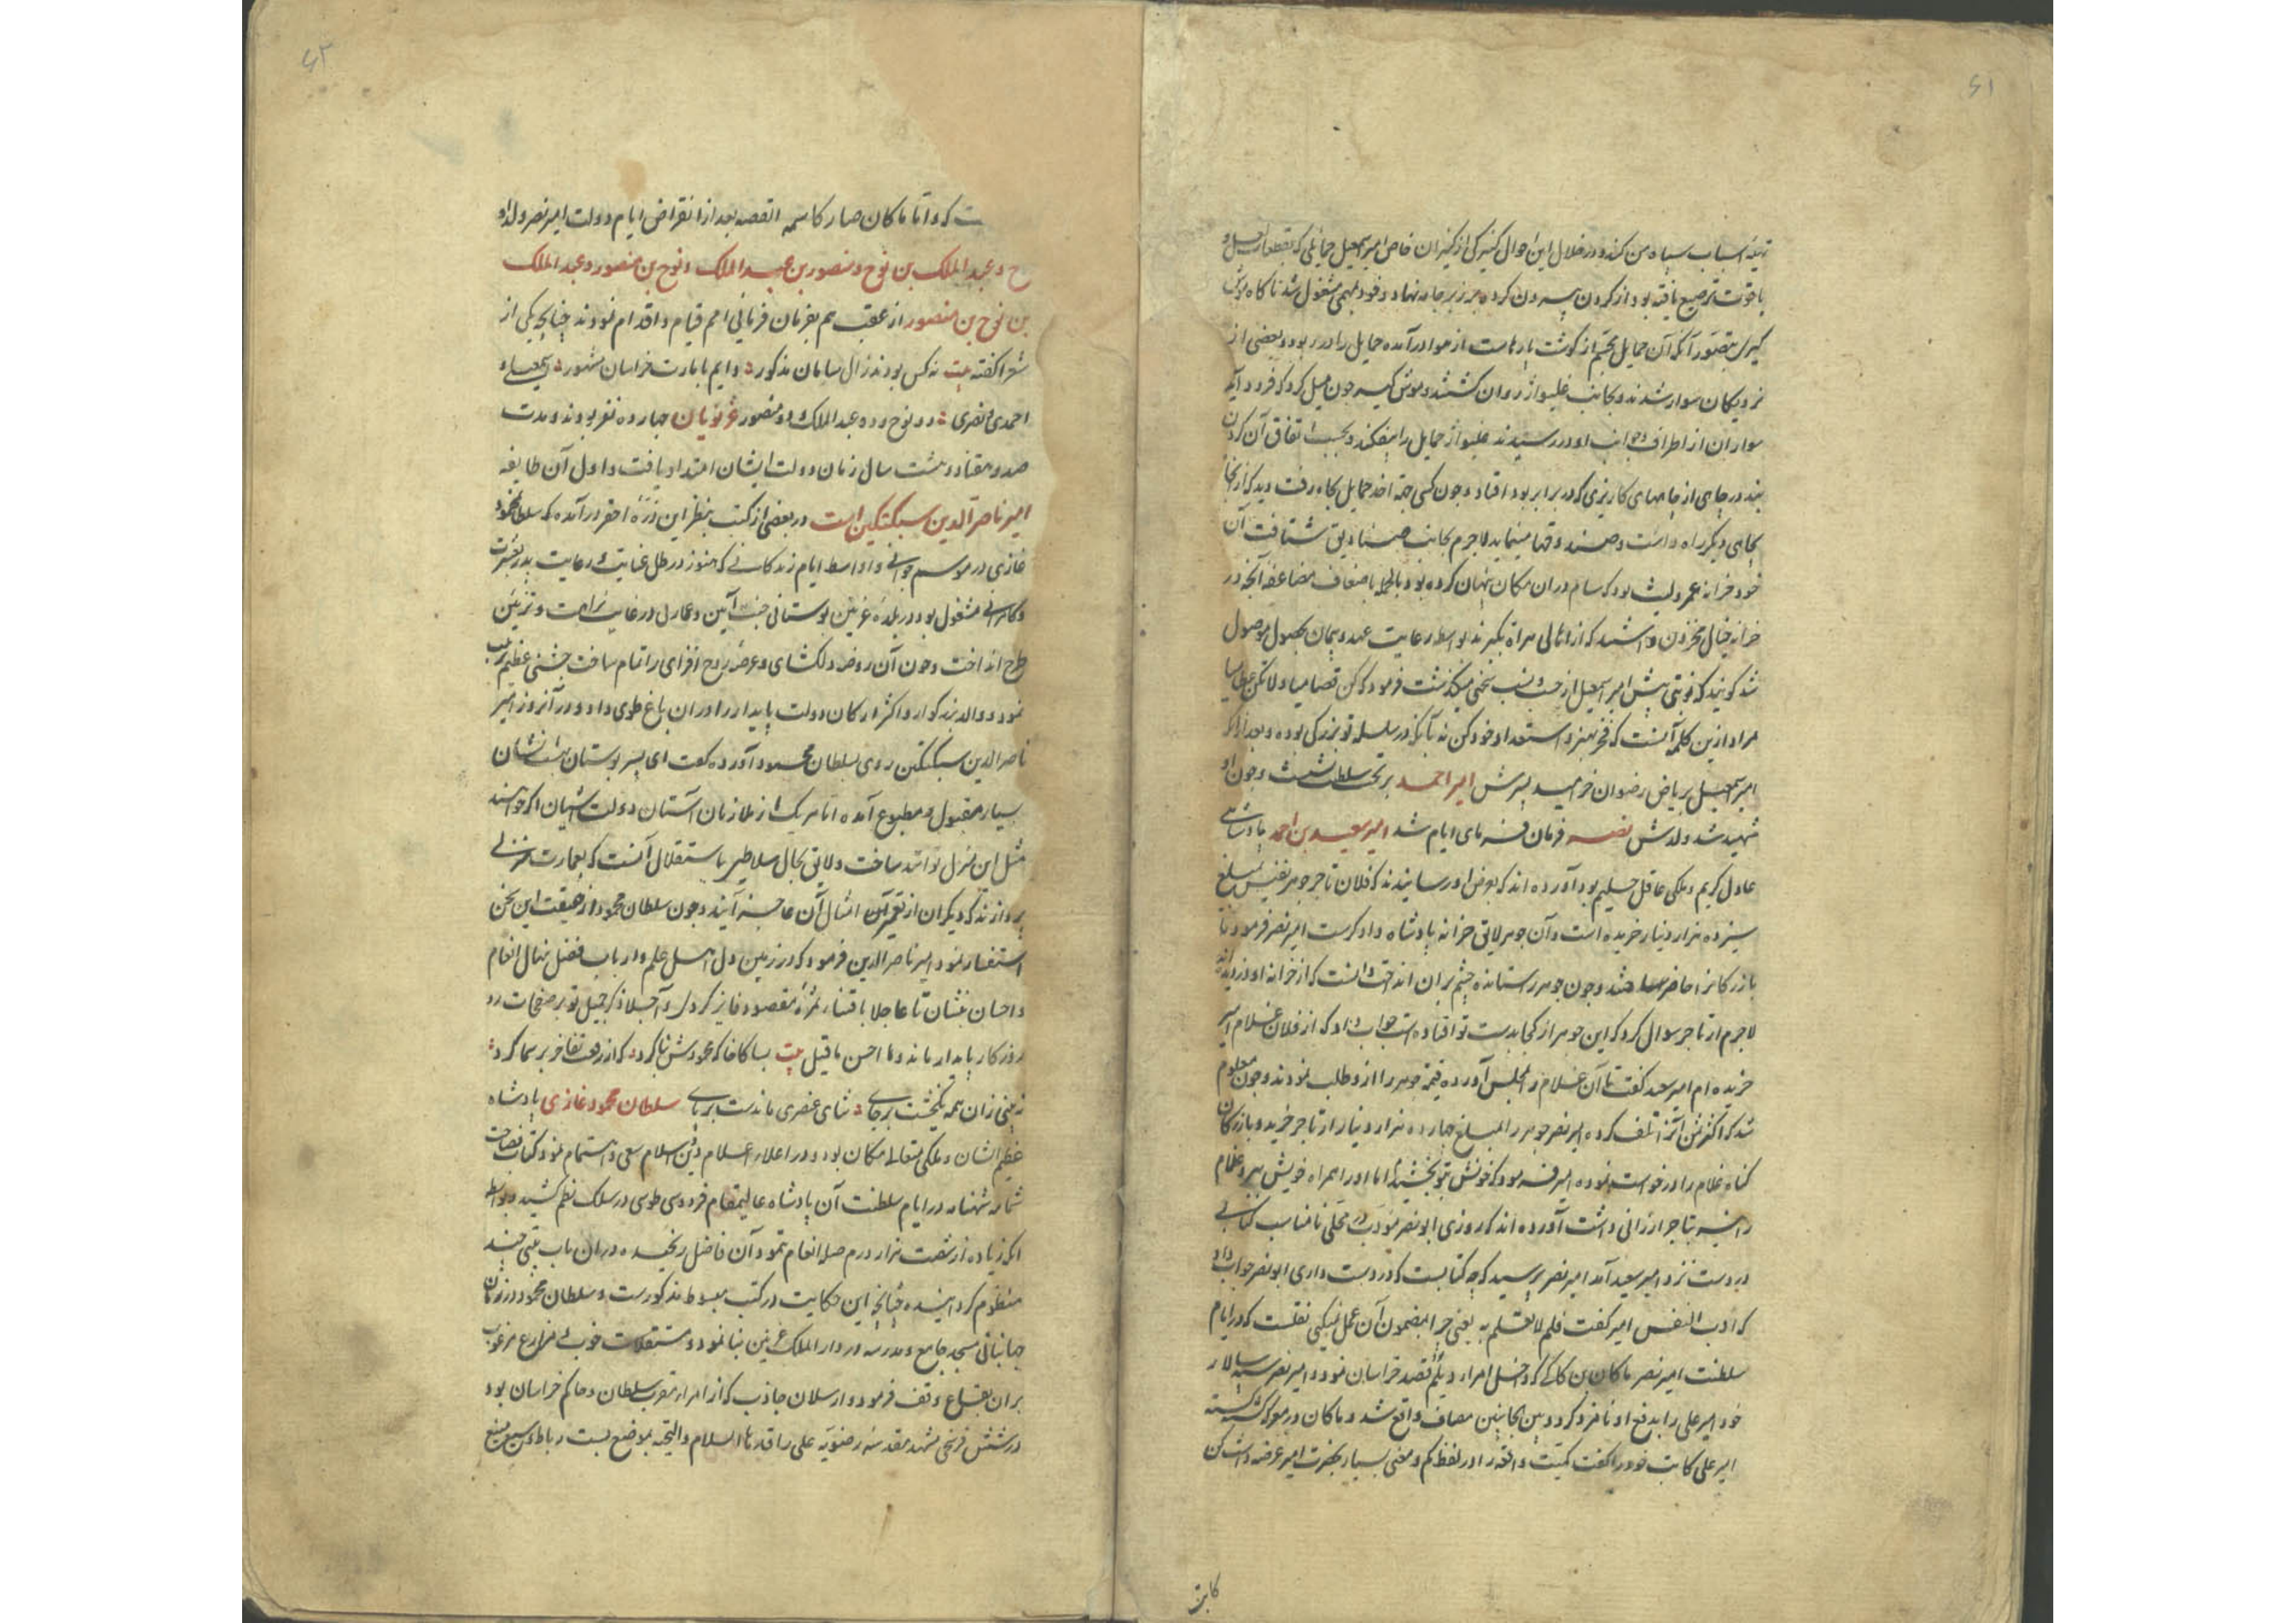 ۶۱
تهیه اسباب سپاه من کند و در خلال این احوال کنیزکی از کنیزان خاص امیر اسمعیل حمایلی که بقطعات لعل و
یاقوت ترصیع یافته بود از گردن بیرون کرده بر زبر جامه نهاد و خود بمهمی مشغول شد ناگاه موش
گیری بتصور آنکه آن حمایل لختی از گوشت پارهاست از هوا درآمده حمایل را در ربود و بعضی از
نزدیکان سوار شدند و بجانب غلیواژ روان گشتند و موش گیر چون میل کرد که فرود آید
سواران از اطراف و جوانب او در رسیدند غلیواژ حمایل را بیفکند و بحسب اتفاق آن گردن
بند در چاهی از چاههای کاریزی که در برابر بود افتاد و چون کسی جهة اخذ حمایل بچاه رفت دید که از آنجا
بچاهی دیگر راه داشت و صندوقها مینماید لاجرم بجانب صنادیق شتافت آن
خود خزانه عمرو لیث بود که سام در آن مکان پنهان کرده بود بالجمله باضعاف مضاعفه آنچه در
خزانه خیال مخزون داشتند که از اهالی هراة بگیرند بواسطه رعایت عهد و پیمان بحصول موصول
شد گویند که نوبتی پیش امیر اسمعیل از حسب و نسب سخنی میگذشت فرمود که کن عصامیا و لاتکن عظامیا
مراد ازین کلمه آنست که فخر بهنر و استعداد خود کن نه بآنکه در سلسله تو بزرگی بوده و بعد از آنکه
امیر اسمعیل بریاض رضوان خرامید پسرش امیر احمد بر تخت سلطنت نشست و چون او
شهید شد ولدش نصر فرمان فرمای ایام شد امیر سعید بن احمد پادشاهی
عادل کریم و ملکی عاقل حلیم بود آورده اند که بعرض او رسانیدند که فلان تاجر جوهر نفیس بمبلغ
سیزده هزار دینار خریده است و آن جوهر لایق خزانه پادشاه دادگرست امیر نصر فرمود تا
بازرگانرا حاضر ساختند و چون جوهر بستانده چشم بران انداخت دانست که از خزانه او دزدیده اند
لاجرم از تاجر سوال کرد که این جوهر از کجا بدست تو افتاده است جواب داد که از فلان غلام امیر
خریده ام امیر سعید گفت تا آن غلام را بمجلس آورده قیمة جوهر را ازو طلب نمودند و چون معلوم
شد که اکثر ثمن آنرا تلف کرده امیر نصر جوهر را بمبلغ چهارده هزار دینار از تاجر خرید و بازرگان
گناه غلام را درخواست نموده امیر فرمود که خونش بتو بخشیدم اما او را همراه خویش ببر و غلام
را نیز بتاجر ارزانی داشت آورده اند که روزی ابونصر مؤدب در محلی نامناسب کتابی
در دست نزد امیر سعید آمد امیر نصر پرسید که چه کتابست که در دست داری ابونصر جواب داد
که ادب النفس امیر گفت فلم لا تعلم به یعنی چرا بمضمون آن عمل نمیکنی نقلست که در ایام
سلطنت امیر نصر ماکان بن کاکی که داخل امراء دیلم قصد خراسان نمود و امیر نصر سپهسالار
خود امیر علی را بدفع او نامزد کرد و بین الجانبین مصاف واقع شد و ماکان در معرکه کشته گشته
امیر علی کاتب خود را گفت کمیت واقعه را در لفظ کم و معنی بسیار بحضرت امیر عرضه داشت کن
کاتب
۶۲
ت که و اما ماکان صار کاسمه القصه بعد از انقراض ایام دولت امیر نصر ولد او
ح و عبد الملک بن نوح و منصور بن عبد الملک و نوح بن منصور و عبد الملک
بن نوح بن منصور از عقب هم بفرمان فرمائی امم قیام و اقدام نمودند چنانچه یکی از
شعرا گفته بیت نه کس بودند زال سامان مذکور دایم بامارت خراسان مشهور اسمعیلی و
احمدی و نصری دو نوح و دو عبد الملک و دو منصور غزنویان چهارده نفر بودند و مدت
صد و هفتاد و هشت سال زمان دولت ایشان امتداد یافت و اول آن طایفه
امیر ناصر الدین سبکتکین است در بعضی از کتب بنظر این ذره احقر درآمده که سلطان محمود
غازی در موسم جوانی و اواسط ایام زندگانی که هنوز در ظل عنایت و رعایت پدر بعشرت
و کامرانی مشغول بود در بلده غزنین بوستانی جنت آیین و عمارتی در غایت نزاهت و تزئین
طرح انداخت و چون آن روضه دلکشای و عرصه روح افزای را تمام ساخت جشنی عظیم ترتیب
نمود و والد بزرگوار و اکثر ارکان دولت پایدار را در آن باغ طوی داد و در آنروز امیر
ناصر الدین سبکتکین روی بسلطان محمود آورده گفت ای پسر بوستان بهشت نشان
بسیار مقبول و مطبوع آمده اما هر یک از ملازمان آستان دولت آشیان اگر خواهند
مثل این منزل توانند ساخت و لایق بحال سلاطین باستقلال آنست که بعمارت منزلی
پردازند که دیگران از تعمیر آن امثال آن عاجز آیند و چون سلطان محمود از حقیقت این سخن
استفسار نمود امیر ناصر الدین فرمود که در زمین دل اهل علم و ارباب فضل نهال انعام
و احسان بنشان تا عاجلا باقتناء ثمره مقصود فایز گردی و آجلا ذکر جمیل تو بر صفحات رو
روزگار پایدار ماند و ما احسن ما قیل بیت بسا کاخا که محمودش بنا کرد که از رفعت تفاخر بر سما کرد
نه بینی زان همه یکخشت برجای ثنای عنصری ماندست برپای سلطان محمود غازی پادشاه
عظیم الشان و ملکی متعالی مکان بود و در اعلاء اعلام دین اسلام سعی و اهتمام نمود کتاب فصاحت
شمامه شهنامه در ایام سلطنت آن پادشاه عالیمقام فردوسی طوسی در سلک نظم کشید و بواسطه
آنکه زیاده از شصت هزار درم صله انعام ننمود آن فاضل رنجیده در آن باب بیتی چند
منظوم گردانیده چنانچه این حکایت در کتب مبسوط مذکورست و سلطان محمود در زمان
جهانبانی مسجد جامع و مدرسه در دار الملک غزنین بنا نمود و مستقلات خوب و مزارع مرغوب
بران بقاع وقف فرمود و ارسلان جاذب که از امراء مقرب سلطان و حاکم خراسان بود
در شش فرسخی مشهد مقدسه رضویه علی راقدها السلام و التحیه بموضع بست رباط وسیع منیع